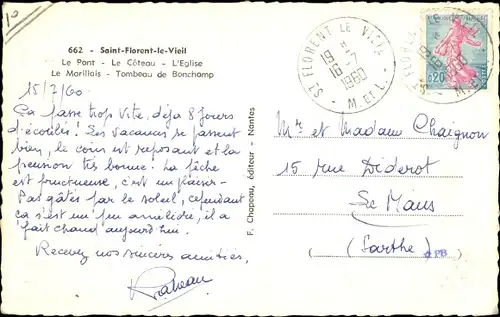 662 - Saint-Florent-le-Vieil
Le Pont - Le Côteau - L'Eglise
Le Marillais - Tombeau de Bonchamp
15/7/60.
Ça passe trop vite, déjà 8 jours
d'écoulés! Les vacances se passent
bien, le coin est reposant et la
pension très bonne. La pêche
est fructueuse, c'est un plaisir.
Pas gâtés par le soleil, cependant
ça s'est un peu amélioré, il a
fait chaud aujourd'hui.
Recevez nos sincères amitiés,
F. Chapeau, éditeur - Nantes
ST FLORENT LE VIEIL
19 H
16-7
1960
M. ET L.
0,20
Mr et Madame Chaignon
15 rue Diderot
Le Mans
(Sarthe)
PB